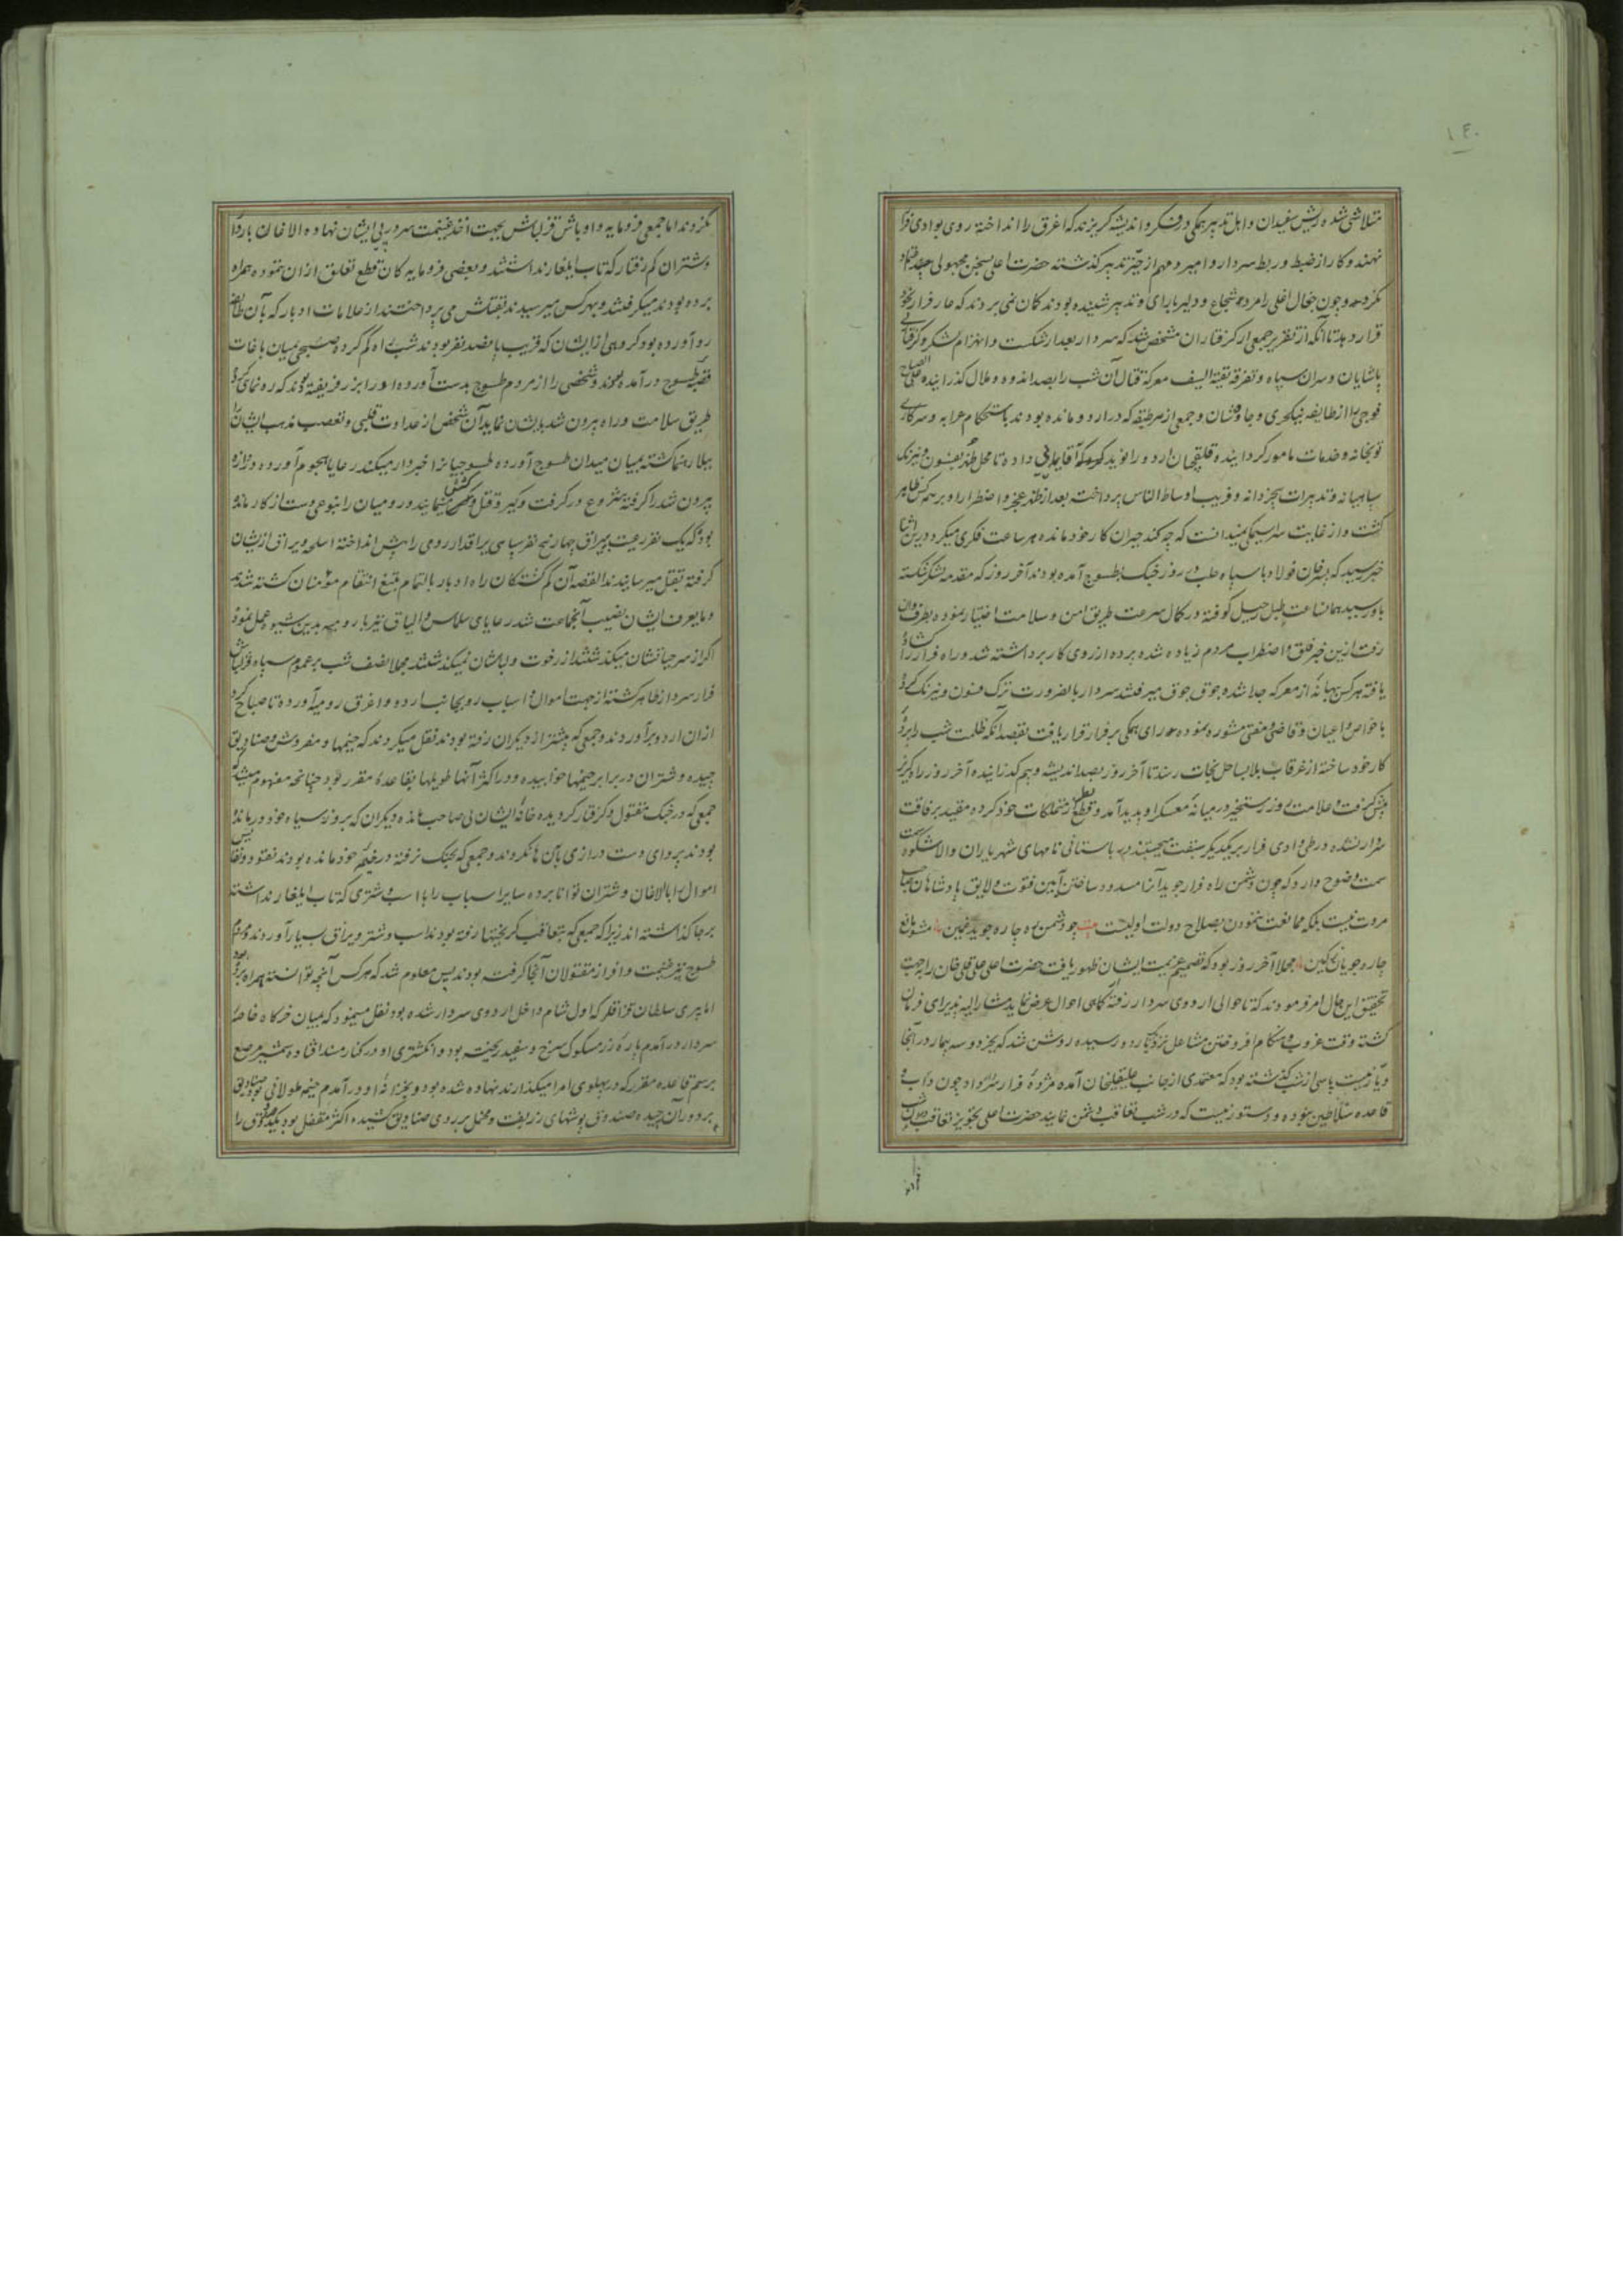 ١٤٠
متلاشی شده ریش سفیدان و اهل تدبیر همگی در فکر و اندیشه گریزند که اغرق را انداخته روی بوادی فرار
نهند و کار از ضبط و ربط سردار و امیر و مهم از حیز تدبیر گذشته حضرت اعلی بسخن مجهولی چند اعتماد
نکرده و چون جغال اغلی را مرد شجاع و دلیر با رای و تدبیر شنیده بودند گمان نمی بردند که عار فرار بخود
قرار دهد تا آنکه از تقریر جمعی از گرفتاران مشخص شد که سردار بعد از شکست و انهزام لشکر و گرفتاری
پاشایان و سران سپاه و تفرقه بقیة السیف معرکه قتال آن شب را بصد اندوه و ملال گذرانیده علی الصباح
فوجی را از طایفه ینکچری و چاوشان و جمعی از هر طبقه که در اردو مانده بودند باستحکام عرابه و سرکاری
توپخانه و خدمات مامور گردانیده قلیقچیان اردو را نوید داده تا محل ظهر بفسون و نیرنگ
سپاهیانه و تدبیرات بخردانه و فریب اوساط الناس پرداخت بعد از ظهر عجز و اضطرار او بر همه کس ظاهر
گشت و از غایت سراسیمگی نمیدانست که چه کند حیران کار خود مانده هر ساعت فکری میکرد درین اثنا
خبر رسید که پسر خان فولاد با سپاه حلب که روز جنگ بطسوج آمده بودند آخر روز که مقدمه لشکر شکسته
باو رسید همان ساعت طبل رحیل کوفته در کمال سرعت طریق امن و سلامت اختیار نموده بطرف وان
رفت ازین خبر قلق و اضطراب مردم زیاده شده پرده از روی کار برداشته شد و راه فرار را گشاده
یافته هر کس ببهانه از معرکه جدا شده جوق جوق میرفتند سردار بالضرورت ترک فسون و نیرنگ کرده
با خواص و اعیان و قاضی و مفتی مشوره نموده رای همگی بر فرار قرار یافت بقصد آنکه ظلمت شب را پرده
کار خود ساخته از غرقاب بلا بساحل نجات رسند تا آخر روز بصد اندیشه و بیم گذرانیده آخر روز راه گریز
پیش گرفت و علامت روز رستخیز در میانه معسکر او پدید آمد و قطع تعلق از متملکات خود کرده مقید برفاقت
سردار نشده در طی وادی فرار بر یکدیگر سبقت میجستند در باستانی نامهای شهریاران والاشکوه
سمت وضوح دارد که چون دشمن راه فرار جوید آنرا مسدود ساختن آیین فتوت و لایق پادشاهان صاحب
مروت نیست بلکه ممانعت ننمودن بصلاح دولت اولیست بیت چو دشمن ره چاره جوید مبین مشو مانع
چاره جویان بکین مجملا آخر روز بود که تصمیم عزیمت ایشان ظهور یافت حضرت اعلی علی قلی خان را بجهت
تحقیق این حال امر فرمودند که تا حوالی اردوی سردار رفته آگاهی احوال عرض نماید مشارالیه پذیرای فرمان
گشته وقت غروب و هنگام افروختن مشاعل نزدیک باردو رسیده روشن شد که بجز دو سه بیمار در آنجا
دیار نیست پاسی از شب گذشته بود که معتمدی از جانب علیقلیخان آمده مژده فرار سردار داد چون داب و
قاعده سلاطین نبوده و دستور نیست که در شب تعاقب دشمن نمایند حضرت اعلی تجویز تعاقب در آن شب
نکردند اما جمعی فرومایه و اوباش قزلباش بجهت اخذ غنیمت سر در پی ایشان نهاده الاغان باردار
و شتران کم رفتار که تاب ایلغار نداشتند و بعضی فرومایه کان قطع تعلق از آن ننموده همراه
برده بودند میگرفتند و بهر کس میرسیدند بقتلش می پرداختند از علامات ادبار که بآن طایفه
رو آورده بود گروهی از ایشان که قریب پانصد نفر بودند شب راه گم کرده صبحی بمیان باغات
قصبه طسوج درآمده بودند و شخصی را از مردم طسوج بدست آورده او را بزر فریفته بودند که ره نمای کرده
طریق سلامت و راه بیرون شد بدیشان نماید آن شخص از عداوت قلبی و تعصب مذهب ایشان را
ببلا رهنما گشته بمیان میدان طسوج آورده طسوجیانرا خبردار میکند رعایا هجوم آورده دروازه
بیرون شد را گرفته شروع در گرفت و گیر و قتل و کشش مینمایند و رومیان را بنوعی دست از کار مانده
بود که یک نفر رعیت بی یراق چهار پنج نفر سپاهی یراقدار رومی را پیش انداخته اسلحه و یراق از ایشان
گرفته بقتل میرسانیدند القصه آن گم گشتگان راه ادبار بالتمام بتیغ انتقام مؤمنان کشته شدند
و مایعرف ایشان نصیب آنجماعت شد رعایای سلماس و الباق نیز با رومیه بدین شیوه عمل نموده
اگر از سر جانشان میگذشتند از رخوت و لباسشان نمیگذشتند مجملا نصف شب بر عموم سپاه قزلباش
فرار سردار ظاهر گشته از جهت اموال و اسباب رو بجانب اردو و اغرق رومیه آورده تا صباح گرد
از آن اردو برآوردند و جمعی که پیشتر از دیگران رفته بودند نقل میکردند که خیمها و مفروش و صنادیق
چیده و شتران در برابر خیمها خوابیده و در اکثر آنها طویلها بقاعده مقرر بود چنانچه مفهوم میشد که
جمعی که در جنگ مقتول و گرفتار گردیده خانه ایشان بی صاحب مانده دیگران که بروز سیاه خود درمانده
بودند پروای دست درازی بآن ها نکردند و جمعی که بجنگ نرفته در خیمه خود مانده بودند نقود و نفایس
اموال را با الاغان و شتران توانا برده سایر اسباب را با اسب و شتری که تاب ایلغار نداشته
بر جا گذاشته اند زیرا که جمعی که بتعاقب گریختها رفته بودند اسب و شتر و یراق بسیار آوردند و مردم
طسوج نیز غنیمت وافر از مقتولان آنجا گرفته بودند پس معلوم شد که هر کس آنچه توانسته همراه برده بود
اما پیری سلطان قزاقلر که اول شام داخل اردوی سردار شده بود نقل مینمود که بمیان خرگاه خاصه
سردار درآمدم پاره زر مسکوک سرخ و سفید ریخته بود و انگشتری او در کنار مسند افتاده شمشیر مرصع
برسم قاعده مقرر که در پهلوی امرا میگذارند نهاده شده بود و بخزانه او درآمدم خیمه طولانی بود صنادیق
بر دور آن چیده صندوق پوشهای زربفت و مخمل بر روی صنادیق کشیده اکثر مقفل بود یک صندوق را